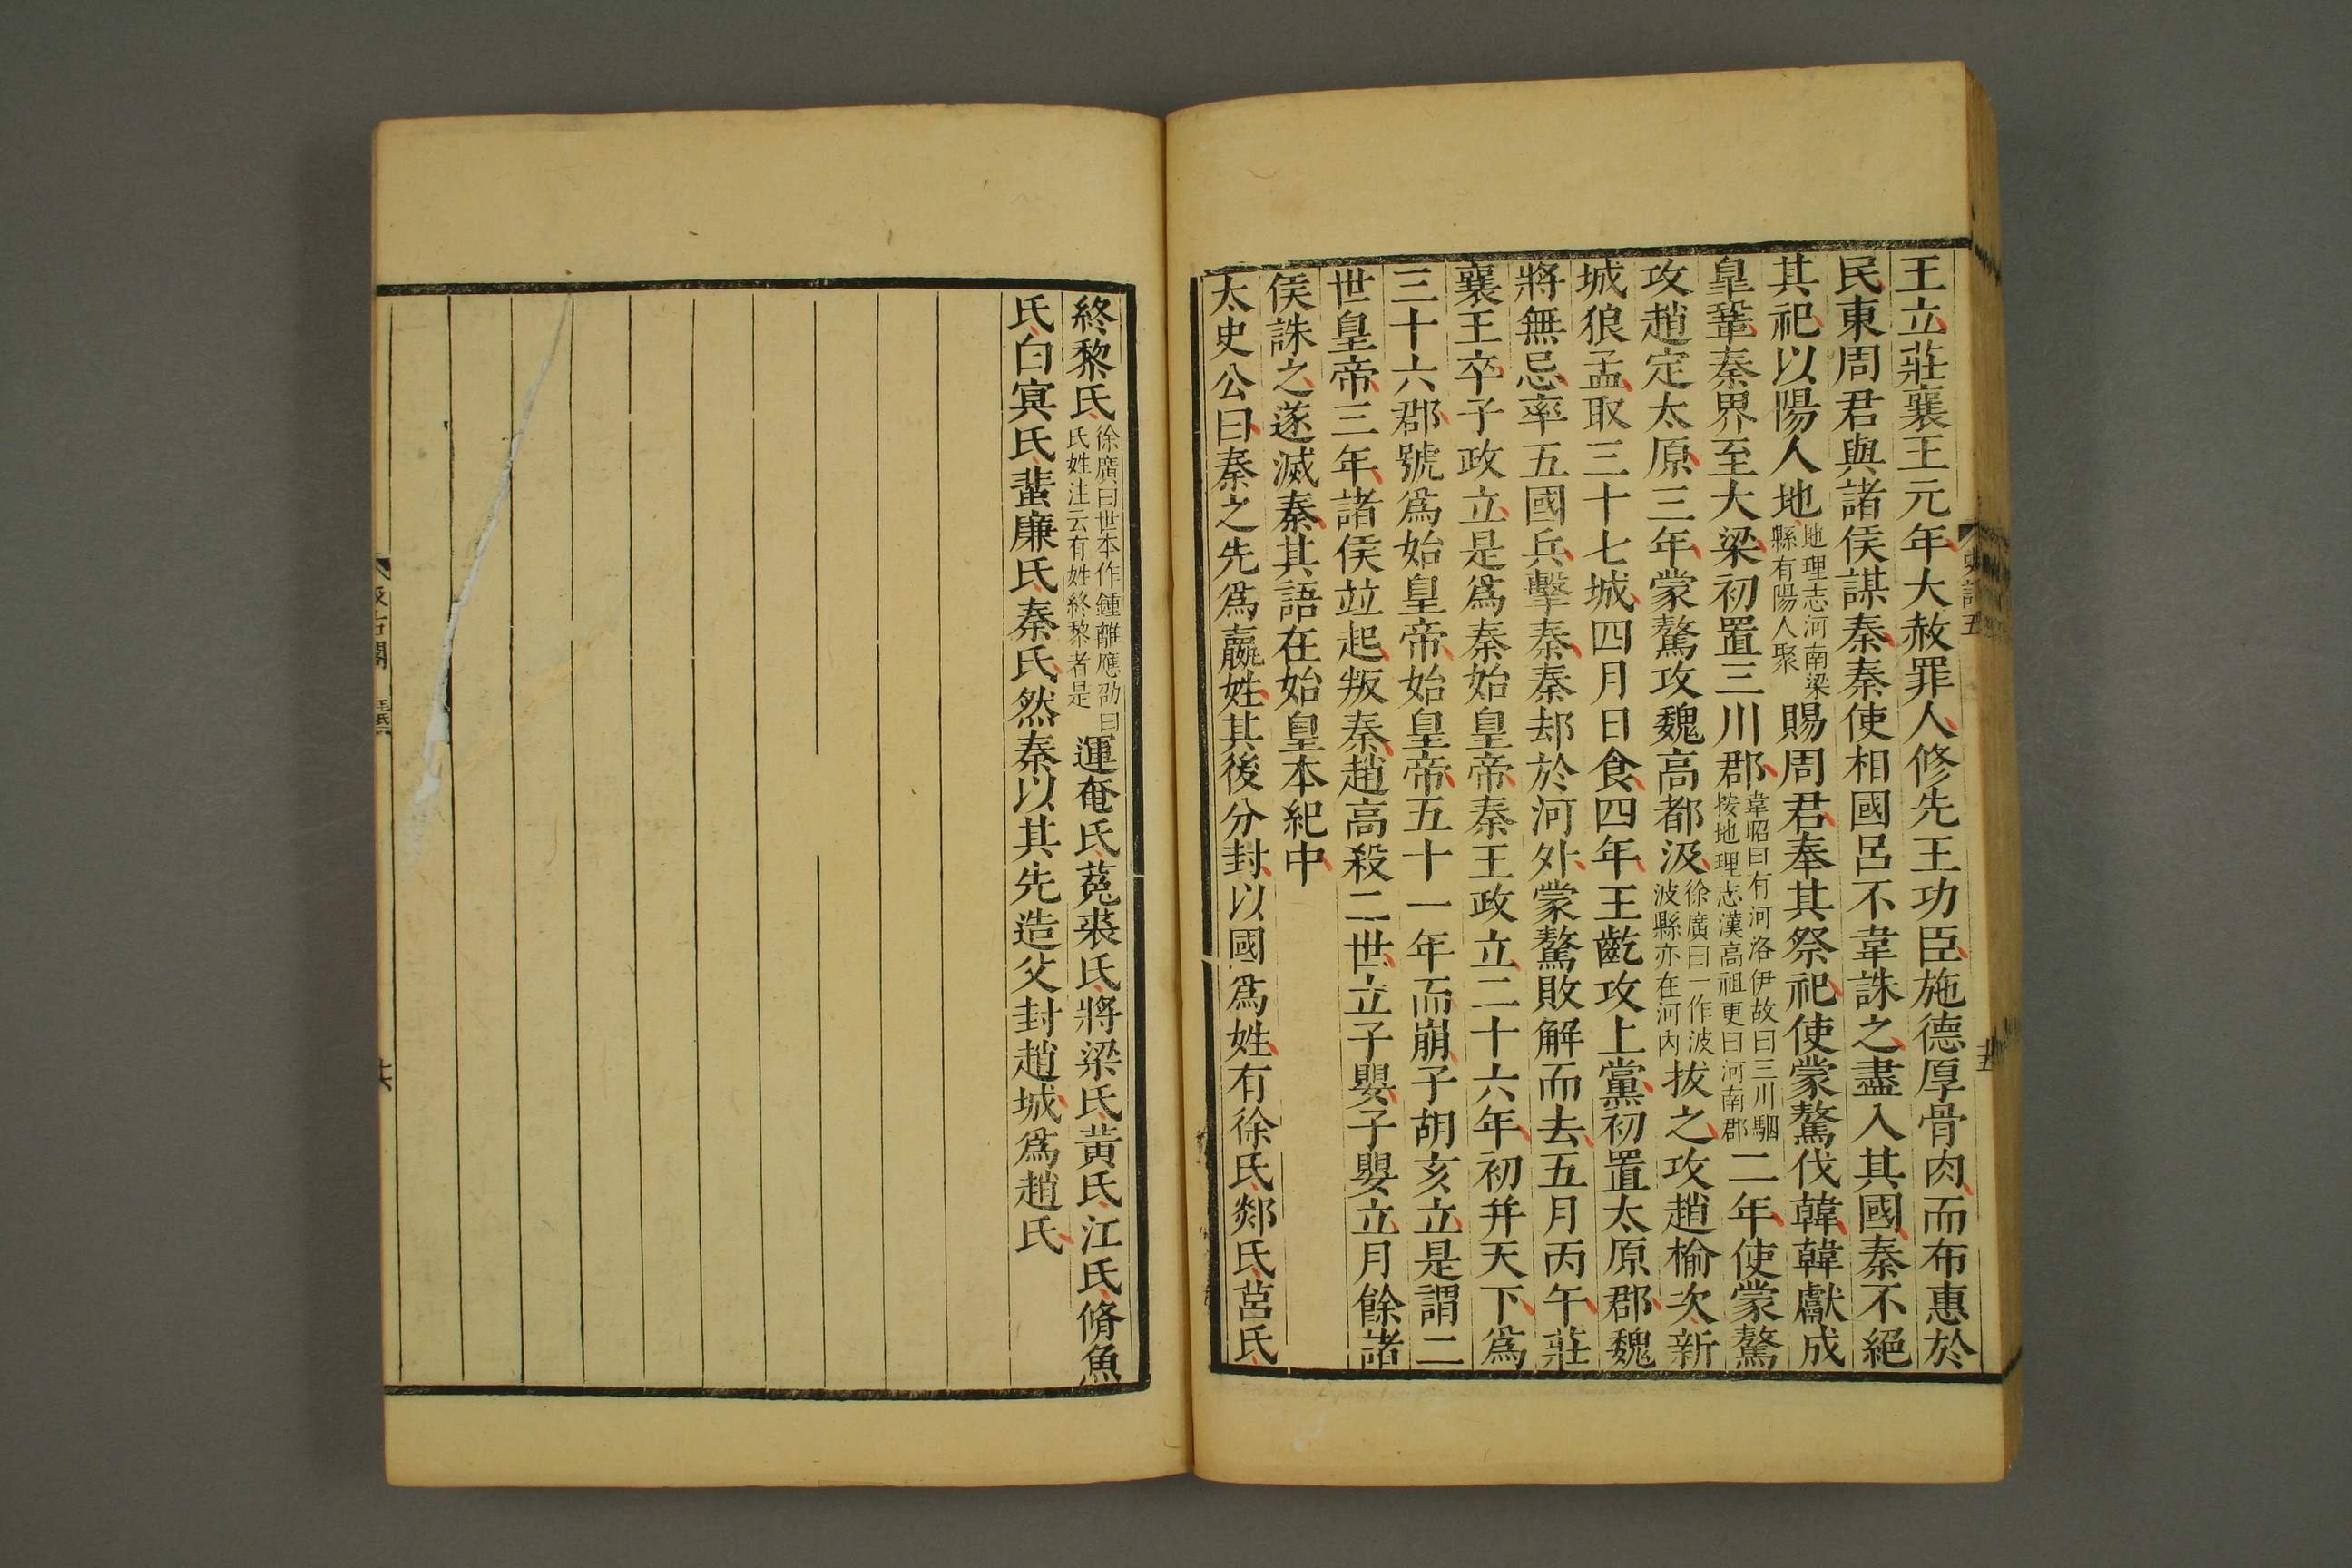 王立莊襄王元年大赦罪人修先王功臣施德厚骨肉而布惠於
民東周君與諸侯謀秦秦使相國呂不韋誅之盡入其國秦不絕
其祀以陽人地地理志河南梁縣有陽人聚賜周君奉其祭祀使蒙驁伐韓韓獻成
皐鞏秦界至大梁初置三川郡韋昭曰有河洛伊故曰三川駰按地理志漢高祖更曰河南郡二年使蒙驁
攻趙定太原三年蒙驁攻魏高都汲徐廣曰一作波波縣亦在河內拔之攻趙榆次新
城狼孟取三十七城四月日食四年王齕攻上黨初置太原郡魏
將無忌率五國兵擊秦秦却於河外蒙驁敗解而去五月丙午莊
襄王卒子政立是爲秦始皇帝秦王政立二十六年初并天下爲
三十六郡號爲始皇帝始皇帝五十一年而崩子胡亥立是謂二
世皇帝三年諸侯竝起叛秦趙高殺二世立子嬰子嬰立月餘諸
侯誅之遂滅秦其語在始皇本紀中
太史公曰秦之先爲嬴姓其後分封以國爲姓有徐氏郯氏莒氏
終黎氏徐廣曰世本作鍾離應劭曰氏姓注云有姓終黎者是運奄氏菟裘氏將梁氏黃氏江氏脩魚
氏白寘氏蜚廉氏秦氏然秦以其先造父封趙城爲趙氏
史記五
十五
汲古閣
毛氏
十六